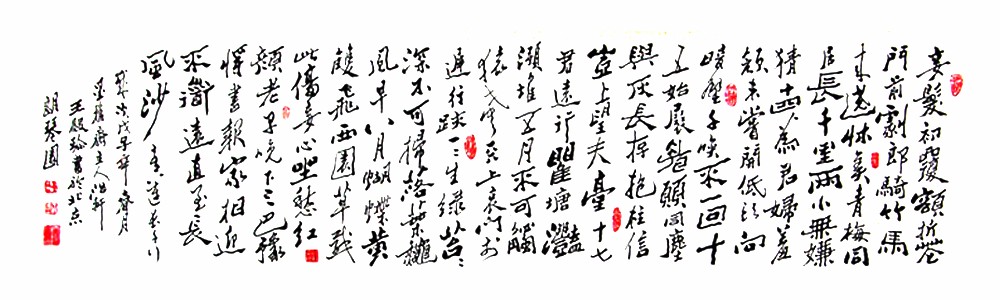 妾髮初覆額折花
門前劇郎騎竹馬
来遶牀弄青梅同
居長干里兩小無嫌
猜十四為君婦羞
顏未嘗開低頭向
暗壁千喚不一回十
五始展眉願同塵
與灰長存抱柱信
豈上望夫臺十七
君遠行瞿塘灩
澦堆五月不可觸
猿聲天上哀門前
遲行跡一一生綠苔苔
深不可掃落葉
風早八月蝴蝶黃
雙飛西園草感
此傷妾心坐愁紅
顏老早晚下三巴豫
將書報家相迎
不道遠直至長
風沙 李白長干行
歲次戊子年
齋主人浩軒
王殿 書於北京
胡琴園